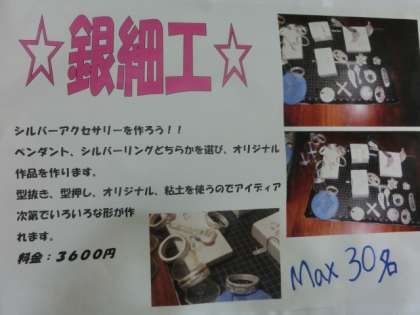 ☆銀細工☆
シルバーアクセサリーを作ろう！！
ペンダント、シルバーリングどちらかを選び、オリジナル
作品を作ります。
型抜き、型押し、オリジナル、粘土を使うのでアイディア
次第でいろいろな形が作
れます。
料金：３６００円
Max 30名